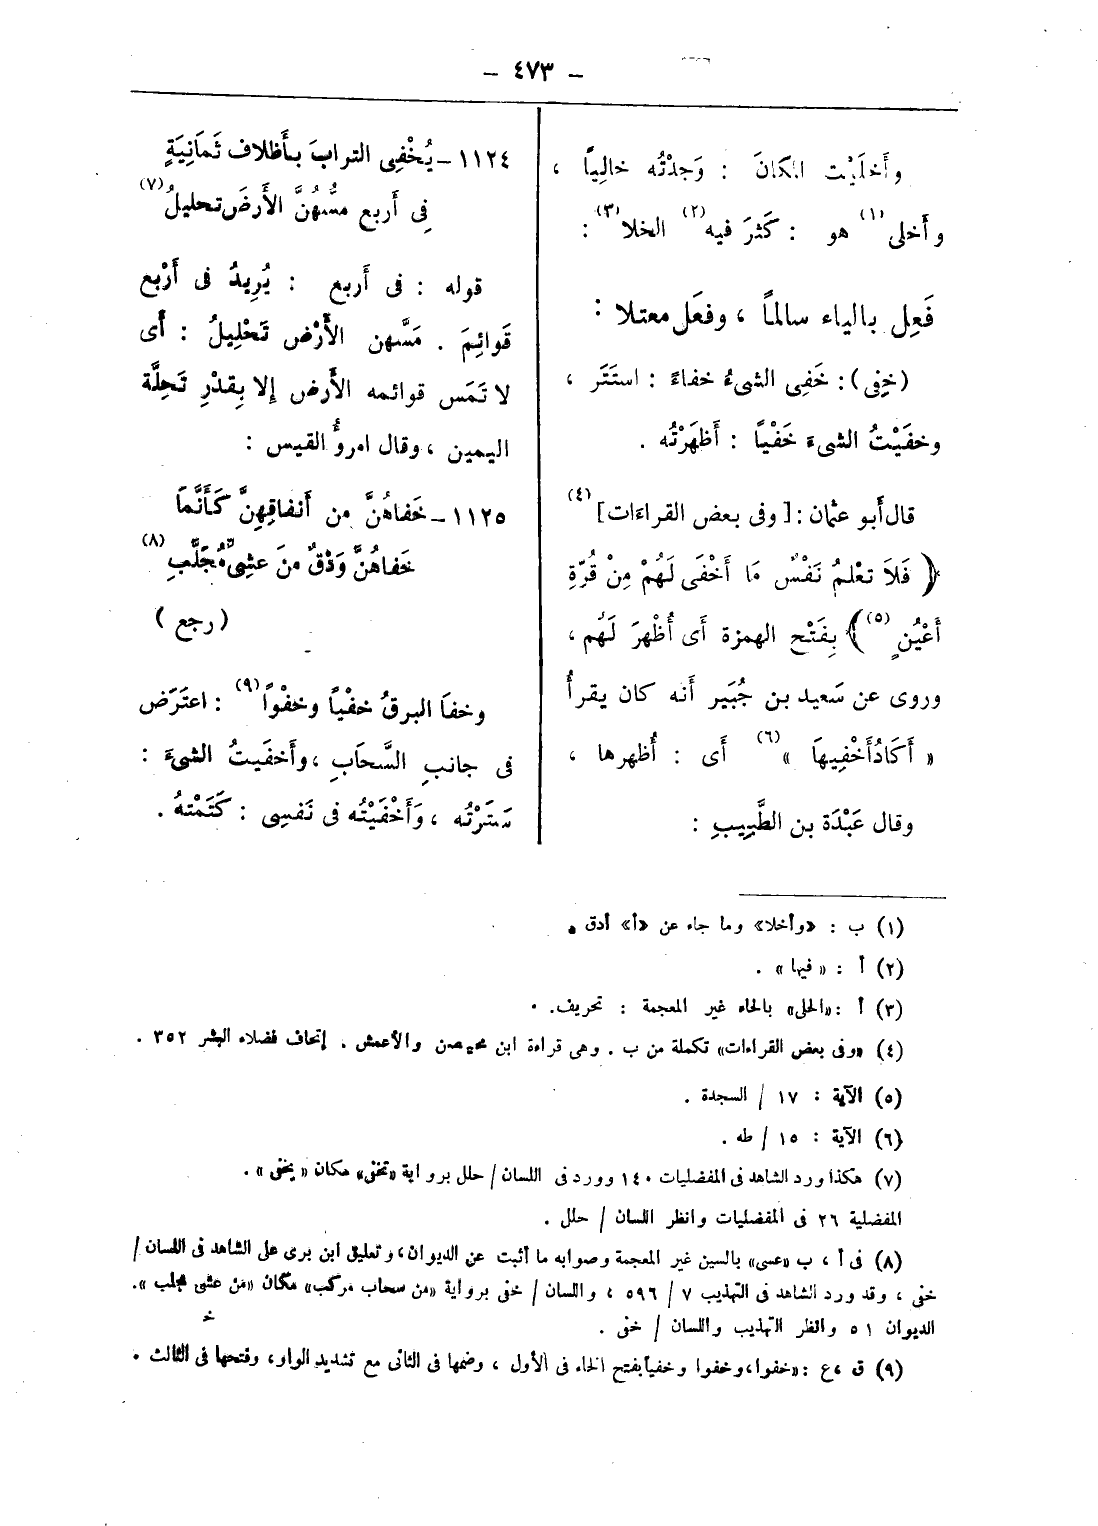 - ٤٧٣ -
وأَخلَيْت المكانَ : وَجدْتُه خالِياً ،
وأَخلى(١) هو : كَثرَ فيه(٢) الخلا(٣) :
فَعِل بالياء سالماً ، وفعَل معتلا :
(خفِى) : خَفِى الشىءُ خفاءً : استَتَر ،
وخفَيْتُ الشىءَ خَفْياً : أَظهَرْتُه .
قال أَبو عثمان : [ وفى بعض القراءات ](٤)
﴿ فَلاَ تعْلمُ نَفْسٌ مَا أَخْفَى لَهُمْ مِنْ قُرّةِ
أَعْيُنٍ(٥)﴾ بِفَتْح الهمزة أَى أُظْهرَ لَهُم ،
وروى عن سَعيد بن جُبَير أَنه كان يقرأُ
« أَكَادُ أَخْفِيهَا »(٦) أَى : أُظهرها ،
وقال عَبْدَة بن الطَّبِيبِ :
١١٢٤ - يُخْفِى الترابَ بأَظلاف ثَمَانِيَةٍ
فِى أَربع مسُّهُنَّ الأَرضَ تحليلُ(٧)
قوله : فى أَربع : يُرِيدُ فى أَرْبع
قَوائِمَ . مَسَّهن الأَرْض تَحْلِيلُ : أَى
لا تَمَس قوائمه الأَرض إِلا بِقدْرِ تَحِلَّة
اليمين ، وقال امرؤُ القيس :
١١٢٥ - خَفاهُنَّ من أَنفاقِهِنَّ كَأَنَّمَا
خَفاهُنَّ وَدْقٌ منَ عشِىٍّ مُجَلَّبِ(٨)
( رجع )
وخفَا البرقُ خفْياً وخفْواً(٩) : اعتَرَض
فى جانبِ السَّحَابِ ، وأَخفَيتُ الشىءَ :
سَتَرْتُه ، وَأَخْفَيْتُه فى نَفسِى : كَتَمْتهُ .
(١) ب : «وأخلا» وما جاء عن «أ» أدق .
(٢) أ : « فيها » .
(٣) أ : «الحلى» بالحاء غير المعجمة : تحريف .
(٤) «وفى بعض القراءات» تكملة من ب . وهى قراءة ابن محيصن والأعمش . إتحاف فضلاء البشر ٣٥٢ .
(٥) الآية : ١٧ / السجدة .
(٦) الآية : ١٥ / طه .
(٧) هكذا ورد الشاهد فى المفضليات ١٤٠ وورد فى اللسان / حلل برواية «تخفى» مكان « يخفى » .
المفضلية ٢٦ فى المفضليات وانظر اللسان / حلل .
(٨) فى أ ، ب «عسى» بالسين غير المعجمة وصوابه ما أثبت عن الديوان ، وتعليق ابن برى على الشاهد فى اللسان /
خفى ، وقد ورد الشاهد فى التهذيب ٧ / ٥٩٦ ، واللسان / خفى برواية «من سحاب مركب» مكان «من عشى مجلب» .
الديوان ٥١ وانظر التهذيب واللسان / خفى .
(٩) ق ، ع : «خفوا ، وخفوا وخفيا بفتح الخاء فى الأول ، وضمها فى الثانى مع تشديد الواو ، وفتحها فى الثالث .